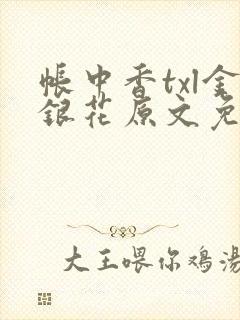 帳中香txl金
銀花原文免
大王喂你鸡汤